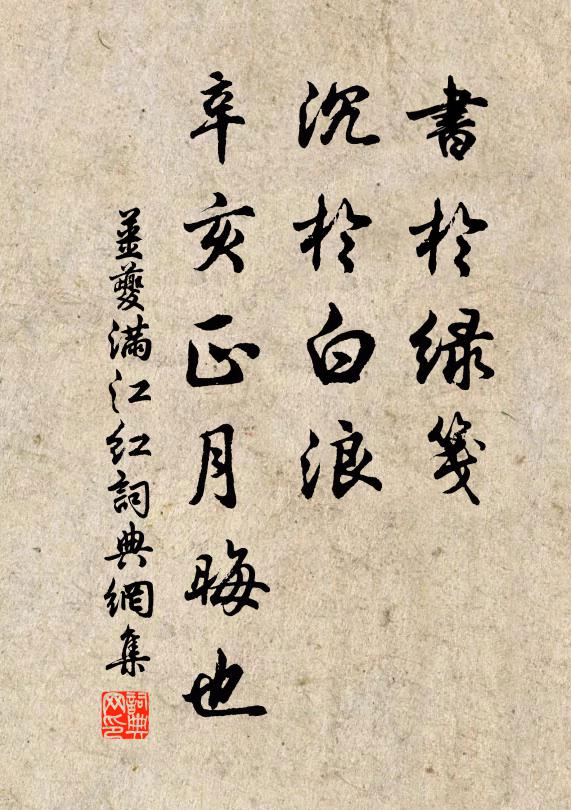 書於緑箋
沉於白浪
辛亥正月晦也
薑夔滿江紅詞典網集
詞典网印